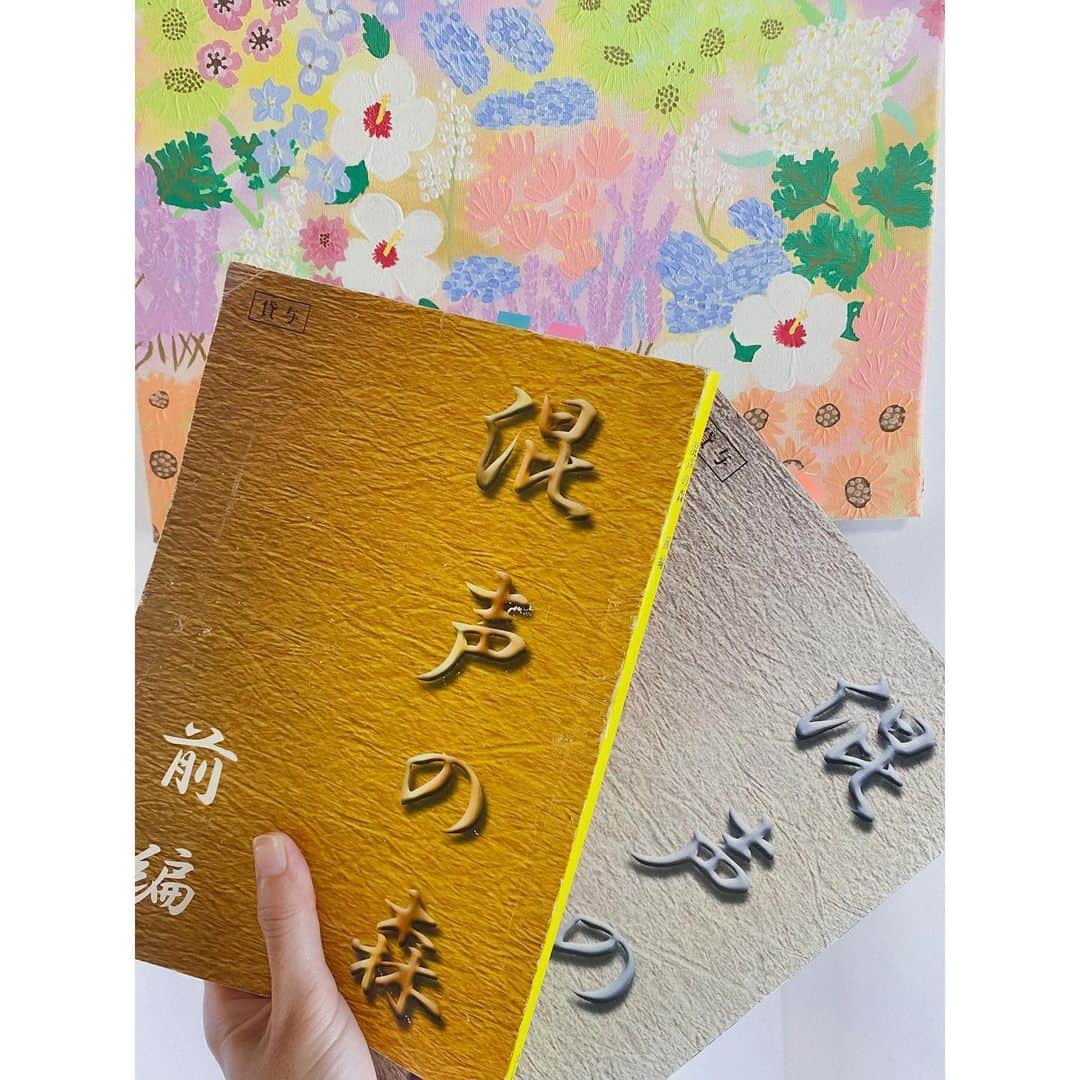 貸与
混声の森
前編
貸与
混声の